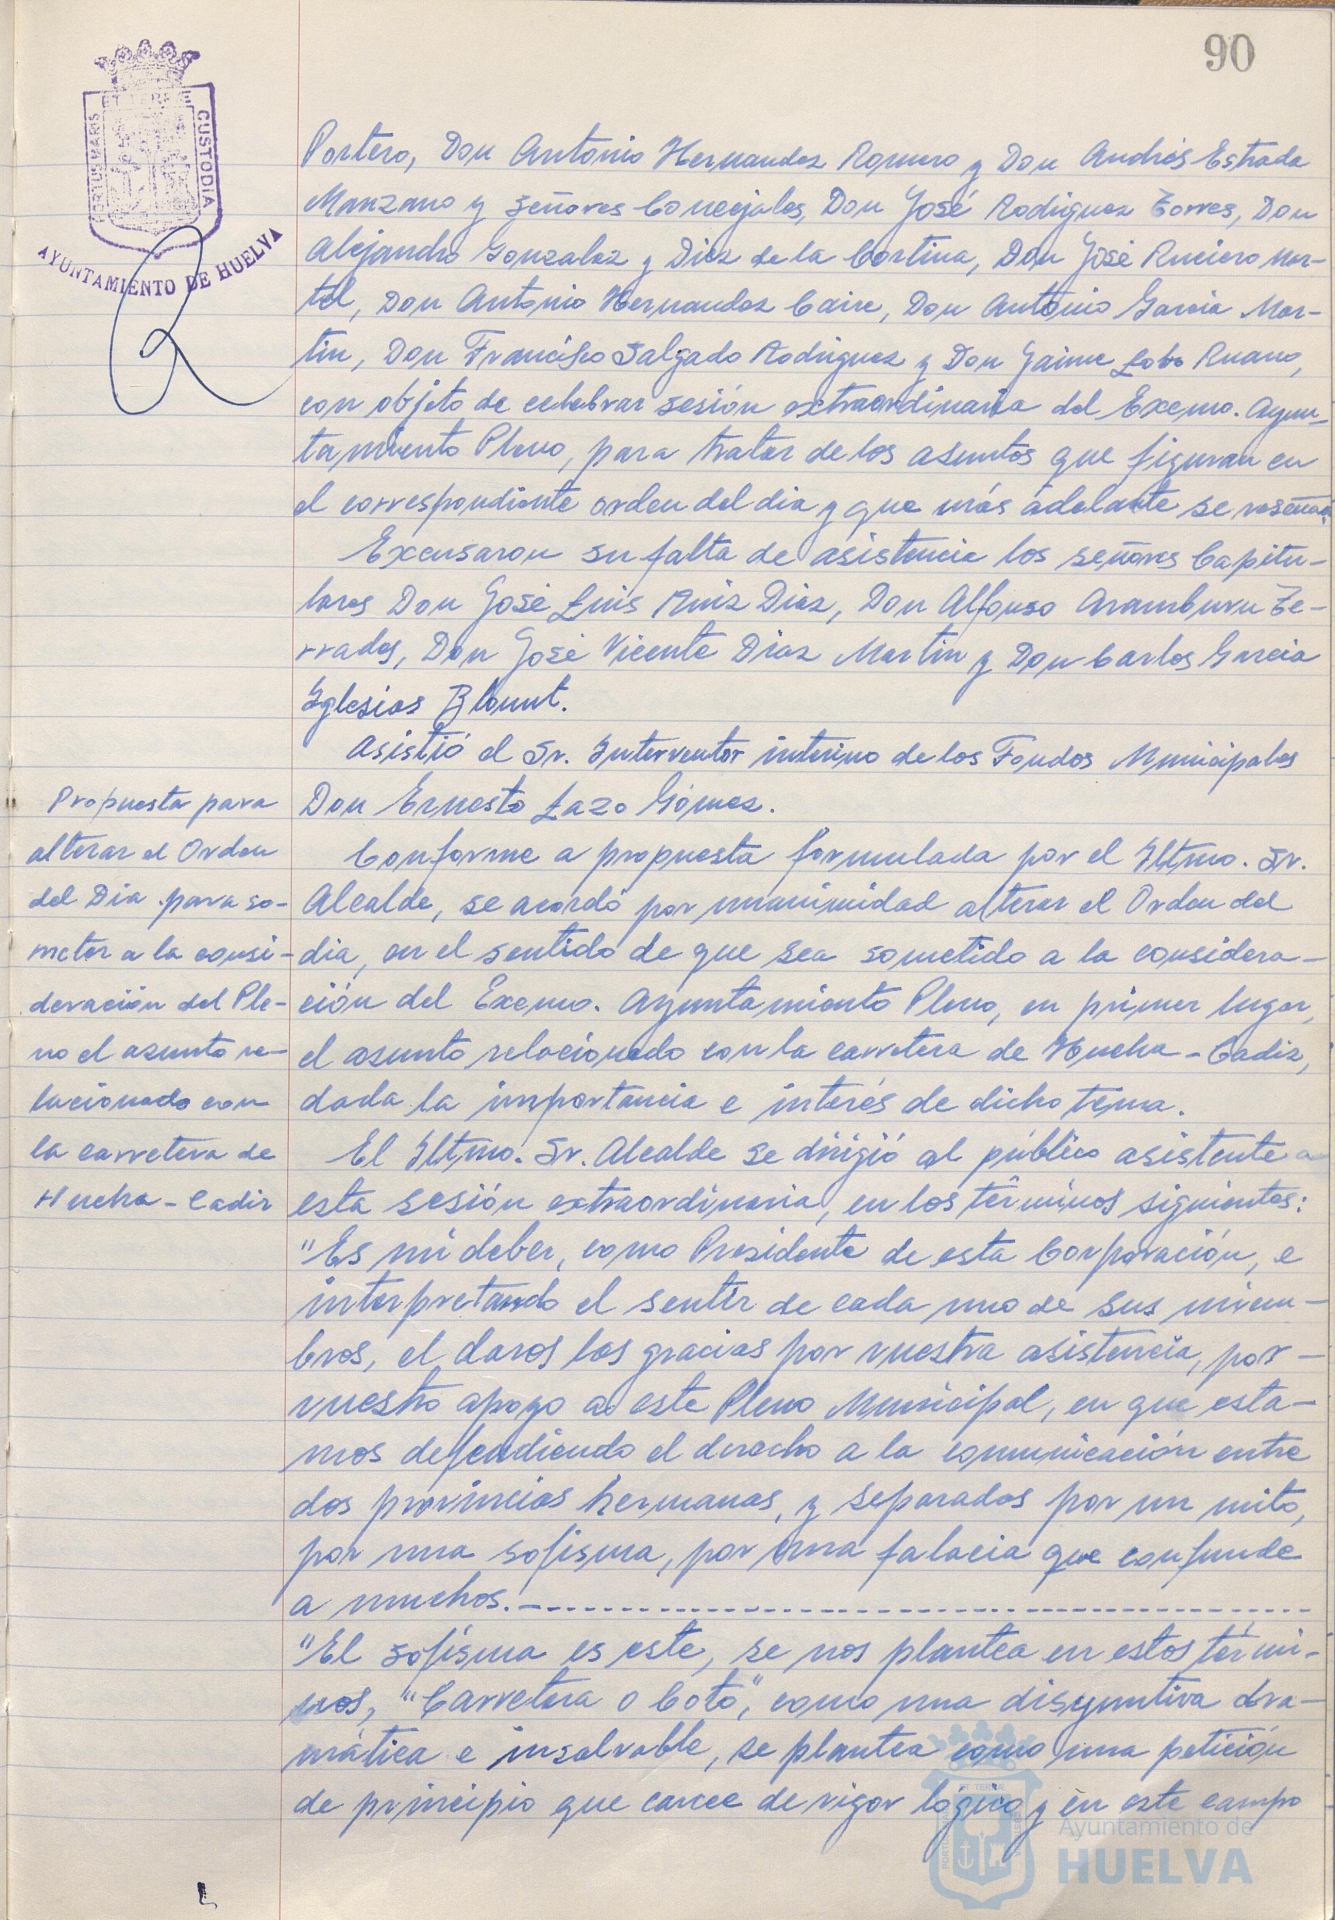 90
PORTUS MARIS
ET TERRE
CUSTODIA
AYUNTAMIENTO DE HUELVA
Portero, Don Antonio Hernandez Romero y Don Andrés Estrada
Manzano y señores Concejales, Don José Rodriguez Torres, Don
Alejandro Gonzalez y Diez de la Cortina, Don José Ruciero Mar-
tel, Don Antonio Hernandez Caire, Don Antonio Garcia Mar-
tin, Don Francisco Salgado Rodriguez y Don Jaime Lobo Ruano,
con objeto de celebrar sesión extraordinaria del Excmo. Ayun-
tamiento Pleno, para tratar de los asuntos que figuran en
el correspondiente orden del dia y que más adelante se reseñan.
Excusaron su falta de asistencia los señores Capitu-
lares Don José Luis Ruiz Diaz, Don Alfonso Aramburu Te-
rrades, Don José Vicente Diaz Martin y Don Carlos Garcia
Iglesias Blount.
Asistió el Sr. Interventor interino de los Fondos Municipales
Don Ernesto Lazo Gómez.
Propuesta para
alterar el Orden
del Dia para so-
meter a la consi-
deración del Ple-
no el asunto re-
lacionado con
la carretera de
Huelva - Cadiz
Conforme a propuesta formulada por el Iltmo. Sr.
Alcalde, se acordó por unanimidad alterar el Orden del
dia, en el sentido de que sea sometido a la considera-
ción del Excmo. Ayuntamiento Pleno, en primer lugar,
el asunto relacionado con la carretera de Huelva - Cadiz,
dada la importancia e interés de dicho tema.
El Iltmo. Sr. Alcalde se dirigió al público asistente a
esta sesión extraordinaria, en los términos siguientes:
"Es mi deber, como Presidente de esta Corporación, e
interpretando el sentir de cada uno de sus miem-
bros, el daros las gracias por vuestra asistencia, por -
vuestro apoyo a este Pleno Municipal, en que esta-
mos defendiendo el derecho a la comunicación entre
dos provincias hermanas, y separadas por un mito,
por una sofisma, por una falacia que confunde
a muchos.-
"El sofisma es este, se nos plantea en estos térmi-
nos, "Carretera o Coto", como una disyuntiva dra-
mática e insalvable, se plantea como una petición
de principio que carece de rigor lógico y en este campo
Ayuntamiento de
HUELVA